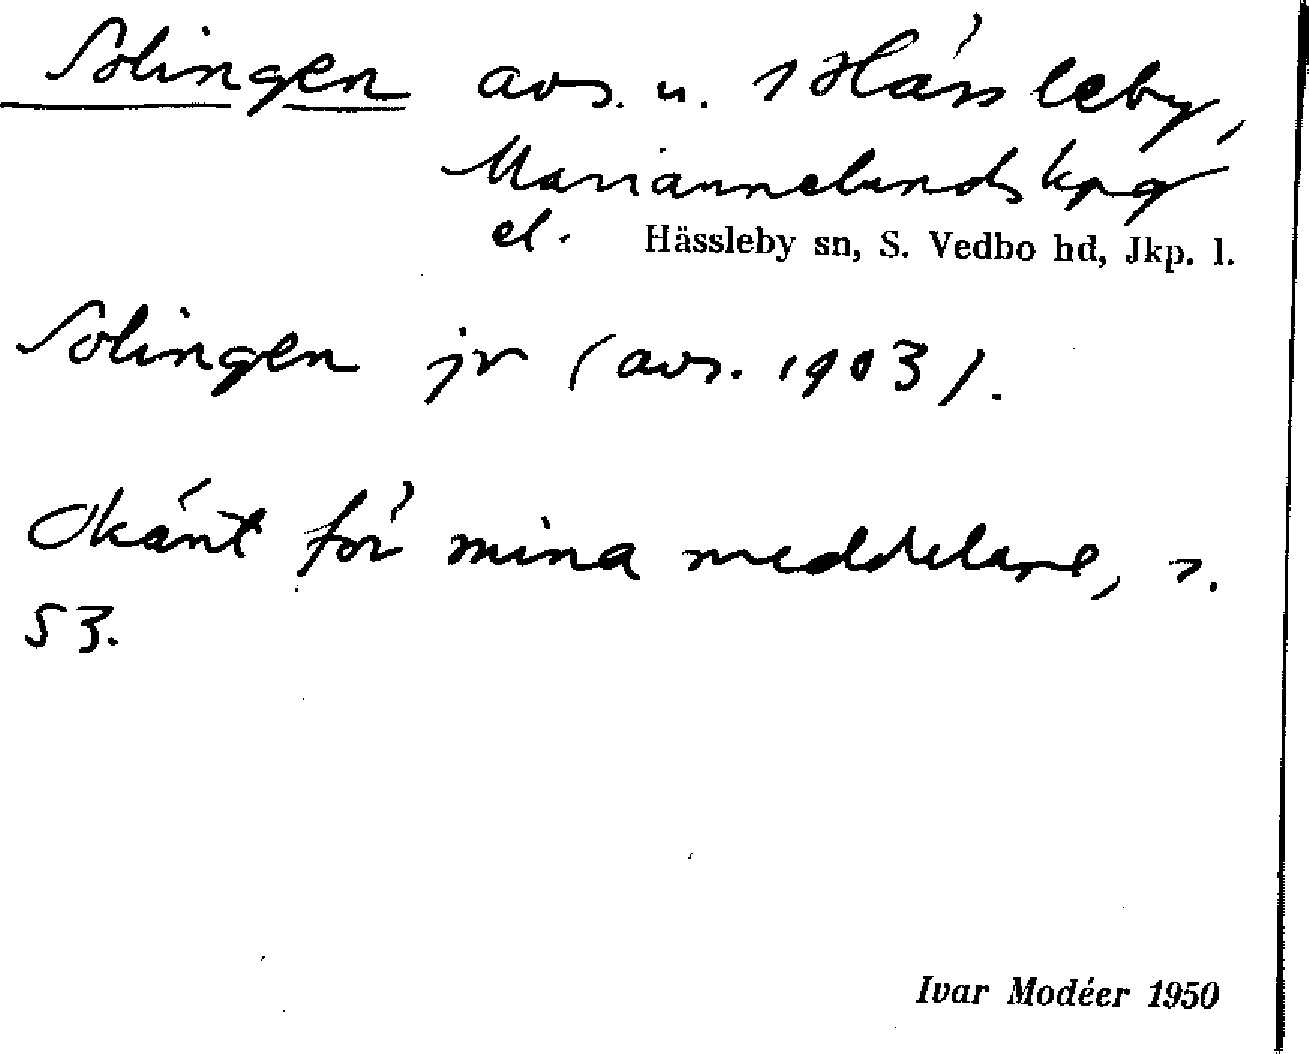 Solingen avs. u. 1 Hässleby,
Mariannelunds kpg
el. Hässleby sn, S. Vedbo hd, Jkp. l.
Solingen jr (avs. 1903).
Okänt för mina meddelare, s.
53.
Ivar Modéer 1950